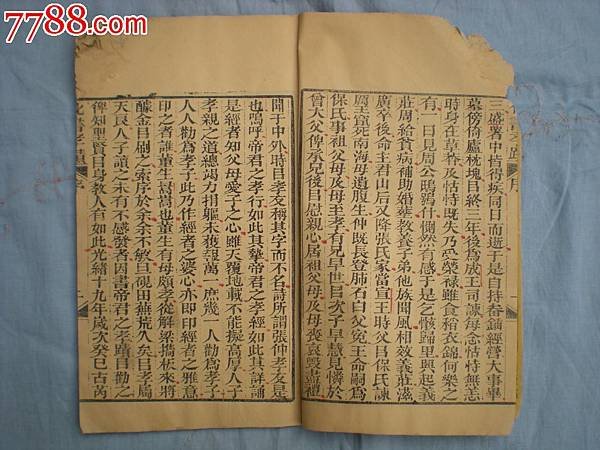 7788.com
三盛署中肯得疾同日而逝于是自持畚鍤經營大事畢
墓傍倚廬枕塊目終三年後為成王司諫每念怙恃無恙
時身在草莽及怙恃既失乃受榮祿雖食稻衣錦何樂之
有一日見周公鴟鴞什惻然有感于是乞骸歸里興起義
莊周給貧病補助婚葬教養子弟他族聞風相效義莊滋
廣卒後命主君山后又降張氏家當宣王時父目保氏諫
厲王寔死南海母遺腹生仲既長登肺石白父冤王命嗣為
保氏事祖父母及母至孝有兄早世目次子早慧見憐於
曾大父傳承兄後目慰親心居祖父母及母喪哀毀盡禮
聞于中外時目孝友稱其字而不名詩所謂張仲孝友是
也嗚呼帝君之孝行如此其摯帝君之孝經如此其詳誦
是經者知父母愛子之心雖天覆地載不能擬高厚人子
孝親之道總竭力捐軀未獲報萬一庶幾一人勸為孝子
人人勸為孝子此乃作經者之婆心亦即印經者之雅意
印之者誰董生嵩嵩也董生有母頗孝從解梁攜板來將
醵金目刷之索序於余余不敏旦硯田蕪荒久矣目孝局
天良人子讀之未有不感發者因書帝君之孝蹟目勸之
俾知聖賢目身教人有如此光緒十九年歲次癸巳古芮